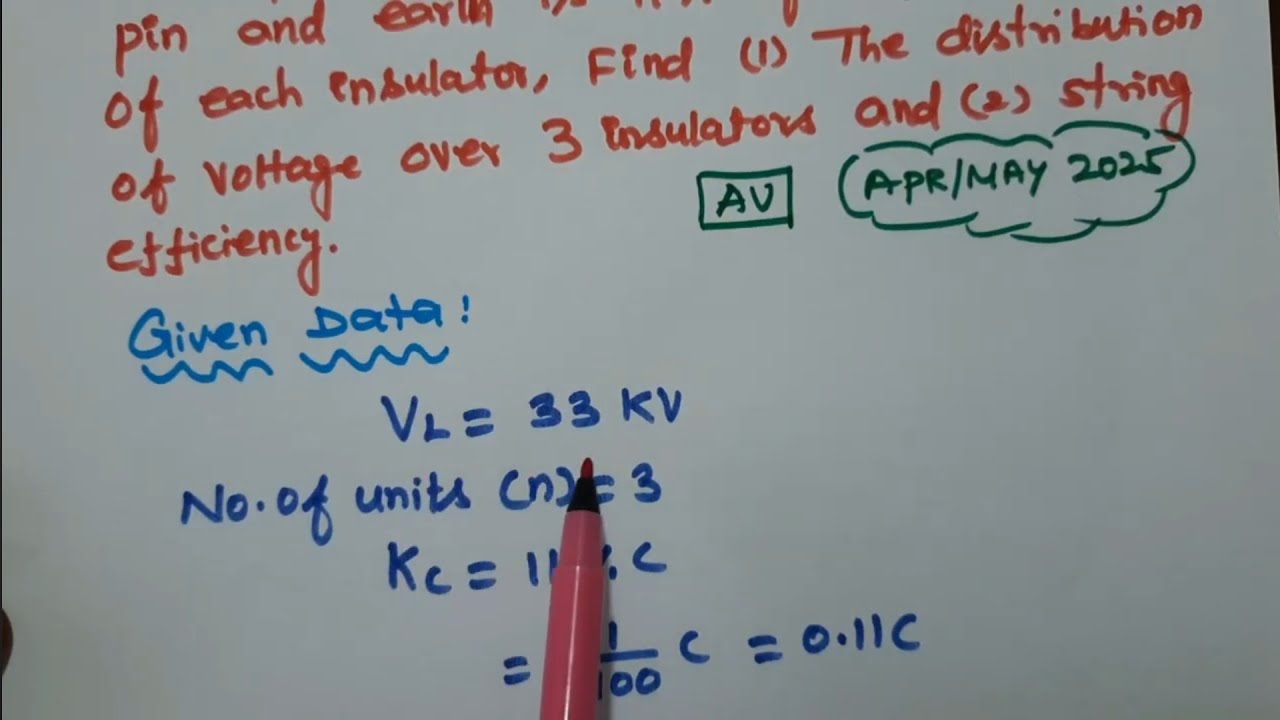 pin and earth is 11%
of each insulator, Find (1) The distribution
of voltage over 3 insulators and (2) string
efficiency.
AV
APR/MAY 2025
Given Data:
VL = 33 KV
No. of units (n) = 3
KC = 11% C
= 11/100 C = 0.11C